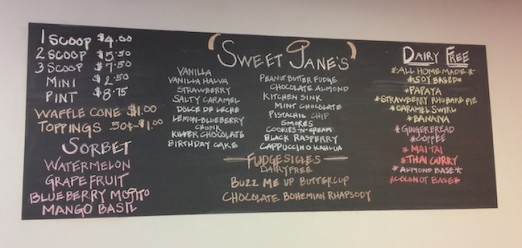 1 SCOOP $4.00
2 SCOOP $5.50
3 SCOOP $7.50
MINI $2.50
PINT $8.75
WAFFLE CONE $1.00
TOPPINGS .50¢-$1.00
SORBET
WATERMELON
GRAPEFRUIT
BLUEBERRY MOJITO
MANGO BASIL
SWEET JANE'S
VANILLA
VANILLA HALVA
STRAWBERRY
SALTY CARAMEL
DULCE DE LECHE
LEMON-BLUEBERRY
CHUNK
KILLER CHOCOLATE
BIRTHDAY CAKE
PEANUT BUTTER FUDGE
CHOCOLATE ALMOND
KITCHEN SINK
MINT CHOCOLATE
PISTACHIO CHIP
SMORES
COOKIES 'N' CREAM
BLACK RASPBERRY
CAPPUCCINO VANILLA
FUDGESICLES
DAIRY FREE
BUZZ ME UP BUTTERCUP
CHOCOLATE BOHEMIAN RHAPSODY
DAIRY FREE
*ALL HOMEMADE*
*SOY BASED*
*PAPAYA
*STRAWBERRY RHUBARB PIE
*CARAMEL SWIRL
*BANANA
*GINGERBREAD
*COFFEE
*MAI TAI
*THAI CURRY
*ALMOND BASE*
*COCONUT BASE*